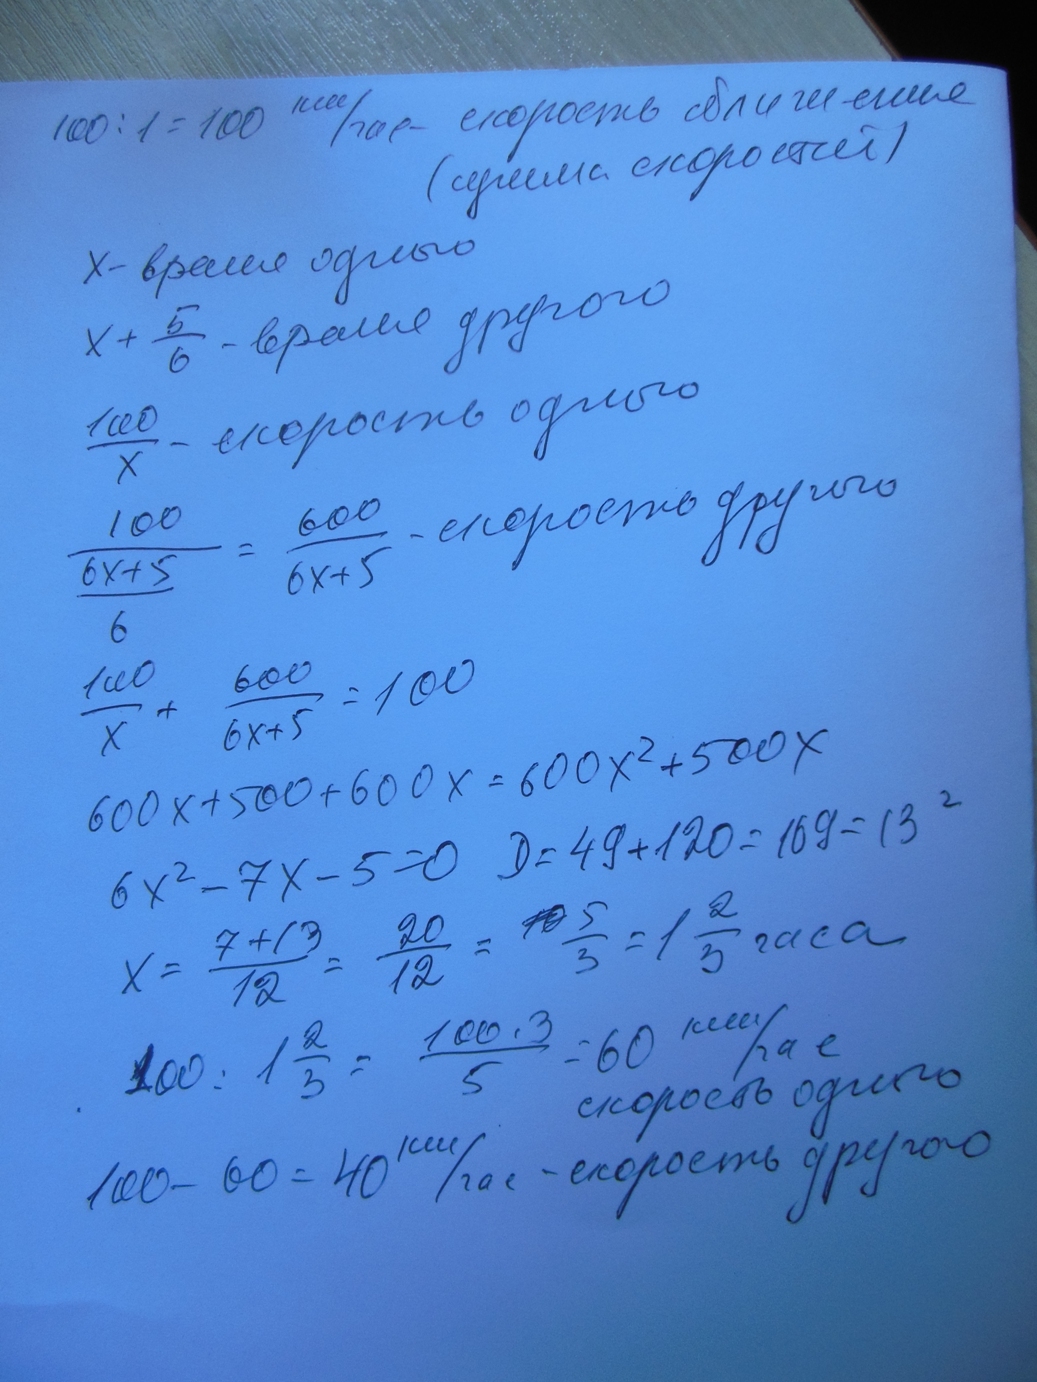 100 : 1 = 100 км/час - скорость сближение
(сумма скоростей)
x - время одного
x + 5/6 - время другого
100/x - скорость одного
100/((6x+5)/6) = 600/(6x+5) - скорость другого
100/x + 600/(6x+5) = 100
600x + 500 + 600x = 600x² + 500x
6x² - 7x - 5 = 0 D = 49 + 120 = 169 = 13²
x = (7+13)/12 = 20/12 = 5/3 = 1 2/3 часа
100 : 1 2/3 = (100·3)/5 = 60 км/час
скорость одного
100 - 60 = 40 км/час - скорость другого